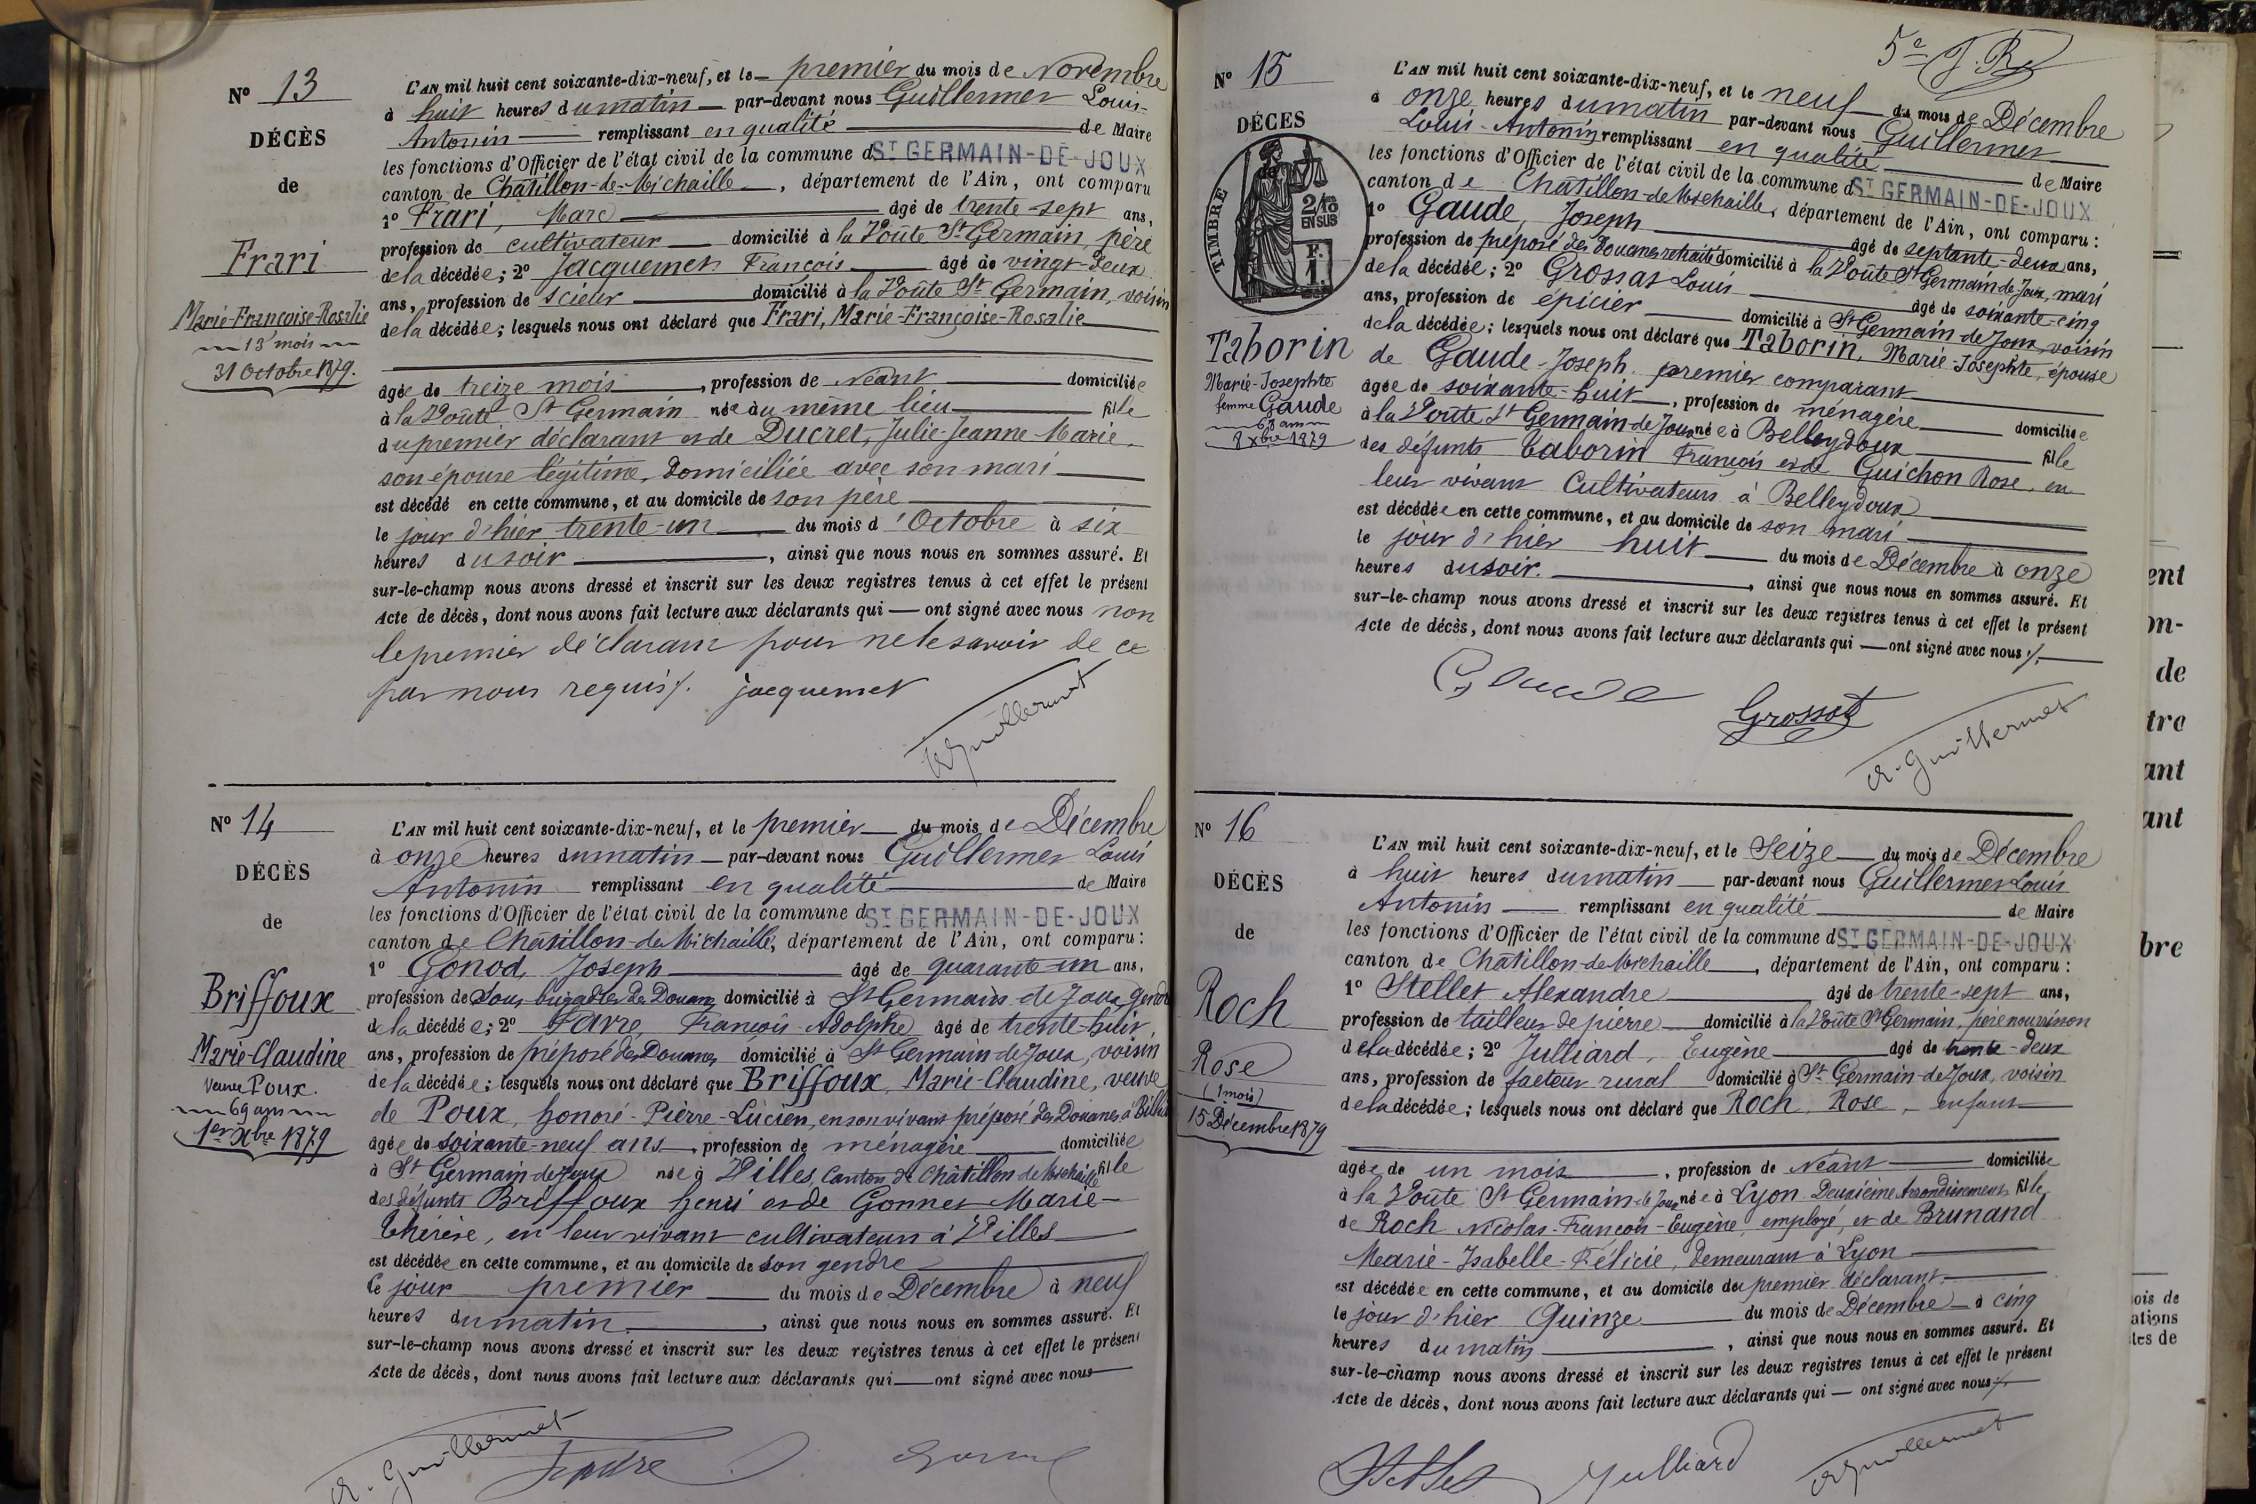 N° 13
DÉCÈS
de
Frari
Marie-Françoise-Rosalie
13 mois
31 Octobre 1879.
L'AN mil huit cent soixante-dix-neuf, et le premier du mois de Novembre
à huit heures du matin par-devant nous Guillermet Louis-
Antonin remplissant en qualité de Maire
les fonctions d'Officier de l'état civil de la commune d ST GERMAIN-DE-JOUX
canton de Châtillon-de-Michaille, département de l'Ain, ont comparu
1° Frari, Marc âgé de trente-sept ans,
profession de cultivateur domicilié à la Voûte St Germain, père
de la décédée; 2° Jacquemet François âgé de vingt-deux
ans, profession de scieur domicilié à la Voûte St Germain, voisin
de la décédée; lesquels nous ont déclaré que Frari, Marie-Françoise-Rosalie
âgée de treize mois, profession de Néant domiciliée
à la Voûte St Germain née au même lieu fille
du premier déclarant et de Ducret, Julie-Jeanne-Marie,
son épouse légitime, domiciliée avec son mari
est décédé en cette commune, et au domicile de son père
le jour d'hier trente-un du mois d'Octobre à six
heures du soir, ainsi que nous nous en sommes assuré. Et
sur-le-champ nous avons dressé et inscrit sur les deux registres tenus à cet effet le présent
Acte de décès, dont nous avons fait lecture aux déclarants qui ont signé avec nous non
le premier déclarant pour ne le savoir de ce
par nous requis /. jacquemet
A. Guillermet
N° 14
DÉCÈS
de
Briffoux
Marie-Claudine
Veuve Poux.
69 ans
1er Xbre 1879
L'AN mil huit cent soixante-dix-neuf, et le premier du mois de Décembre
à onze heures du matin par-devant nous Guillermet Louis
Antonin remplissant en qualité de Maire
les fonctions d'Officier de l'état civil de la commune d ST GERMAIN-DE-JOUX
canton de Châtillon-de-Michaille, département de l'Ain, ont comparu:
1° Gonod, Joseph âgé de quarante-un ans,
profession de Sous-brigadier des Douanes domicilié à St Germain-de-Joux gendre
de la décédée; 2° Favre, François-Adolphe âgé de trente-huit,
ans, profession de préposé des Douanes domicilié à St Germain-de-Joux, voisin
de la décédée; lesquels nous ont déclaré que Briffoux, Marie-Claudine, veuve
de Poux, honoré-Pierre-Lucien, en son vivant préposé des Douanes à
âgée de soixante-neuf ans, profession de ménagère domiciliée
à St Germain-de-Joux née à Villes, Canton de Châtillon de Michaille fille
des défunts Briffoux henri et de Gonnet Marie-
Thérèse, en leur vivant cultivateurs à Villes
est décédée en cette commune, et au domicile de son gendre
le jour premier du mois de Décembre à neuf
heures du matin, ainsi que nous nous en sommes assuré. Et
sur-le-champ nous avons dressé et inscrit sur les deux registres tenus à cet effet le présent
Acte de décès, dont nous avons fait lecture aux déclarants qui ont signé avec nous
A. Guillermet
5e
N° 15
DÉCÈS
de
TIMBRE
2/10
EN SUS
F.
1.
Taborin
Marie-Josephte
femme Gaude
68 ans
8 Xbre 1879
L'AN mil huit cent soixante-dix-neuf, et le neuf du mois de Décembre
à onze heures du matin par-devant nous Guillermet
Louis-Antonin remplissant en qualité de Maire
les fonctions d'Officier de l'état civil de la commune d ST GERMAIN-DE-JOUX
canton de Châtillon-de-Michaille, département de l'Ain, ont comparu:
1° Gaude, Joseph âgé de septante-deux ans,
profession de préposé des Douanes retraité domicilié à la Voûte St Germain de Joux, mari
de la décédée; 2° Grossat Louis âgé de soixante-cinq
ans, profession de épicier domicilié à St Germain-de Joux, voisin
de la décédée; lesquels nous ont déclaré que Taborin, Marie-Josephte, épouse
de Gaude-Joseph premier comparant
âgée de soixante-huit, profession de ménagère domiciliée
à la Voûte St Germain-de-Joux née à Belleydoux fille
des défunts Taborin François et de Guichon Rose, en
leur vivant Cultivateurs à Belleydoux
est décédée en cette commune, et au domicile de son mari
le jour d'hier huit du mois de Décembre à onze
heures du soir., ainsi que nous nous en sommes assuré. Et
sur-le-champ nous avons dressé et inscrit sur les deux registres tenus à cet effet le présent
Acte de décès, dont nous avons fait lecture aux déclarants qui ont signé avec nous /.
Gaude
Grossat
A. Guillermet
N° 16
DÉCÈS
de
Roch
Rose
(1 mois)
15 Décembre 1879
L'AN mil huit cent soixante-dix-neuf, et le Seize du mois de Décembre
à huit heures du matin par-devant nous Guillermet Louis
Antonin remplissant en qualité de Maire
les fonctions d'Officier de l'état civil de la commune d ST GERMAIN-DE-JOUX
canton de Châtillon-de-Michaille, département de l'Ain, ont comparu:
1° Stellet Alexandre âgé de trente-sept ans,
profession de tailleur de pierre domicilié à la Voûte St Germain, père nourrisson
de la décédée; 2° Julliard, Eugène âgé de trente-deux
ans, profession de facteur rural domicilié à St Germain-de-Joux, voisin
de la décédée; lesquels nous ont déclaré que Roch, Rose, enfant
âgée de un mois, profession de Néant domiciliée
à la Voûte St Germain-de Joux née à Lyon Deuxième Arrondissement fille
de Roch Nicolas-François-Eugène, employé, et de Brunand
Marie-Isabelle-Félicie, demeurant à Lyon
est décédée en cette commune, et au domicile du premier déclarant.
le jour d'hier Quinze du mois de Décembre à cinq
heures du matin, ainsi que nous nous en sommes assuré. Et
sur-le-champ nous avons dressé et inscrit sur les deux registres tenus à cet effet le présent
Acte de décès, dont nous avons fait lecture aux déclarants qui ont signé avec nous /.
Stellet
Julliard
A. Guillermet
ent
on-
de
tre
ant
ant
bre
ois de
ations
tes de